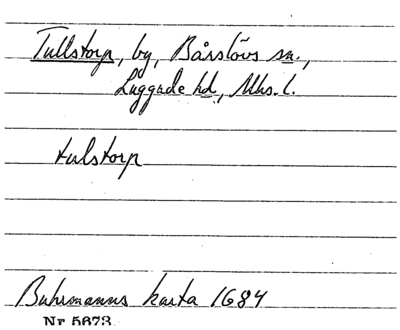 Tullstorp, by, Bårslövs sn.,
Luggude hd, Mhs. l.
tulstorp
Buhrmanns karta 1684
Nr 5673.